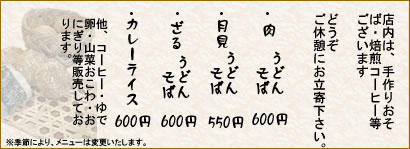 店内は、手作りおそ
ば・焙煎コーヒー等
ございます
どうぞ
ご休憩にお立寄下さい。
・肉 うどん そば 600円
・月見 うどん そば 550円
・ざる うどん そば 600円
・カレーライス 600円
他、コーヒー・ゆで
卵・山菜おこわ・お
にぎり等販売してお
ります。
※季節により、メニューは変更いたします。